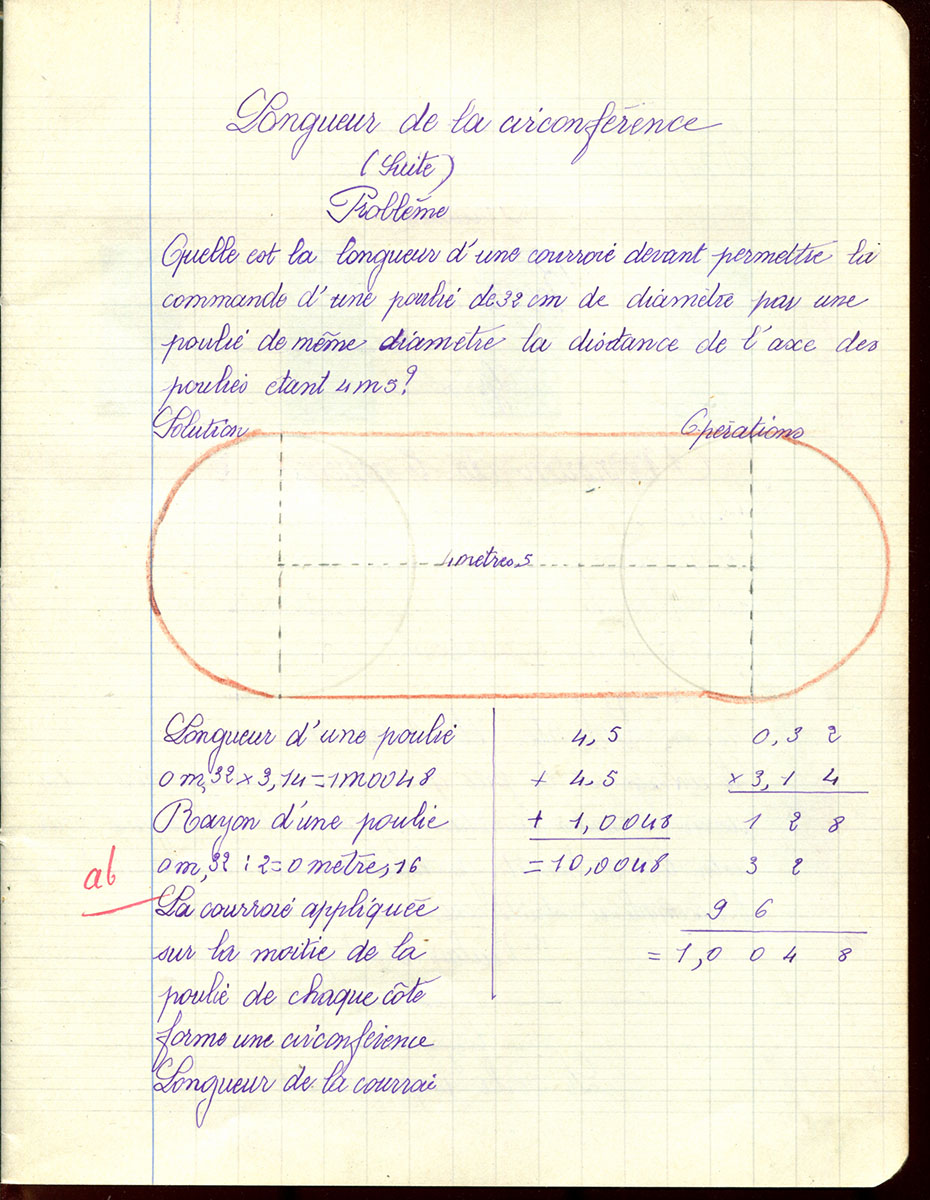 Longueur de la circonférence
(Suite)
Problême
Quelle est la longueur d'une courroie devant permettre la
commande d'une poulie de 32 cm de diamètre par une
poulie de même diamètre la distance de l'axe des
poulies etant 4 m 5?
Solution
Opérations
4 metres,5
Longueur d'une poulie
0 m,32 × 3,14 = 1m0048
Rayon d'une poulie
0 m,32 : 2 = 0 metre,16
ab
La courroie appliquée
sur la moitie de la
poulie de chaque côte
forme une circonférence
Longueur de la courroi
4,5
+ 4,5
+ 1,0048
= 10,0048
0,3 2
× 3,1 4
1 2 8
3 2
9 6
= 1,0 0 4 8